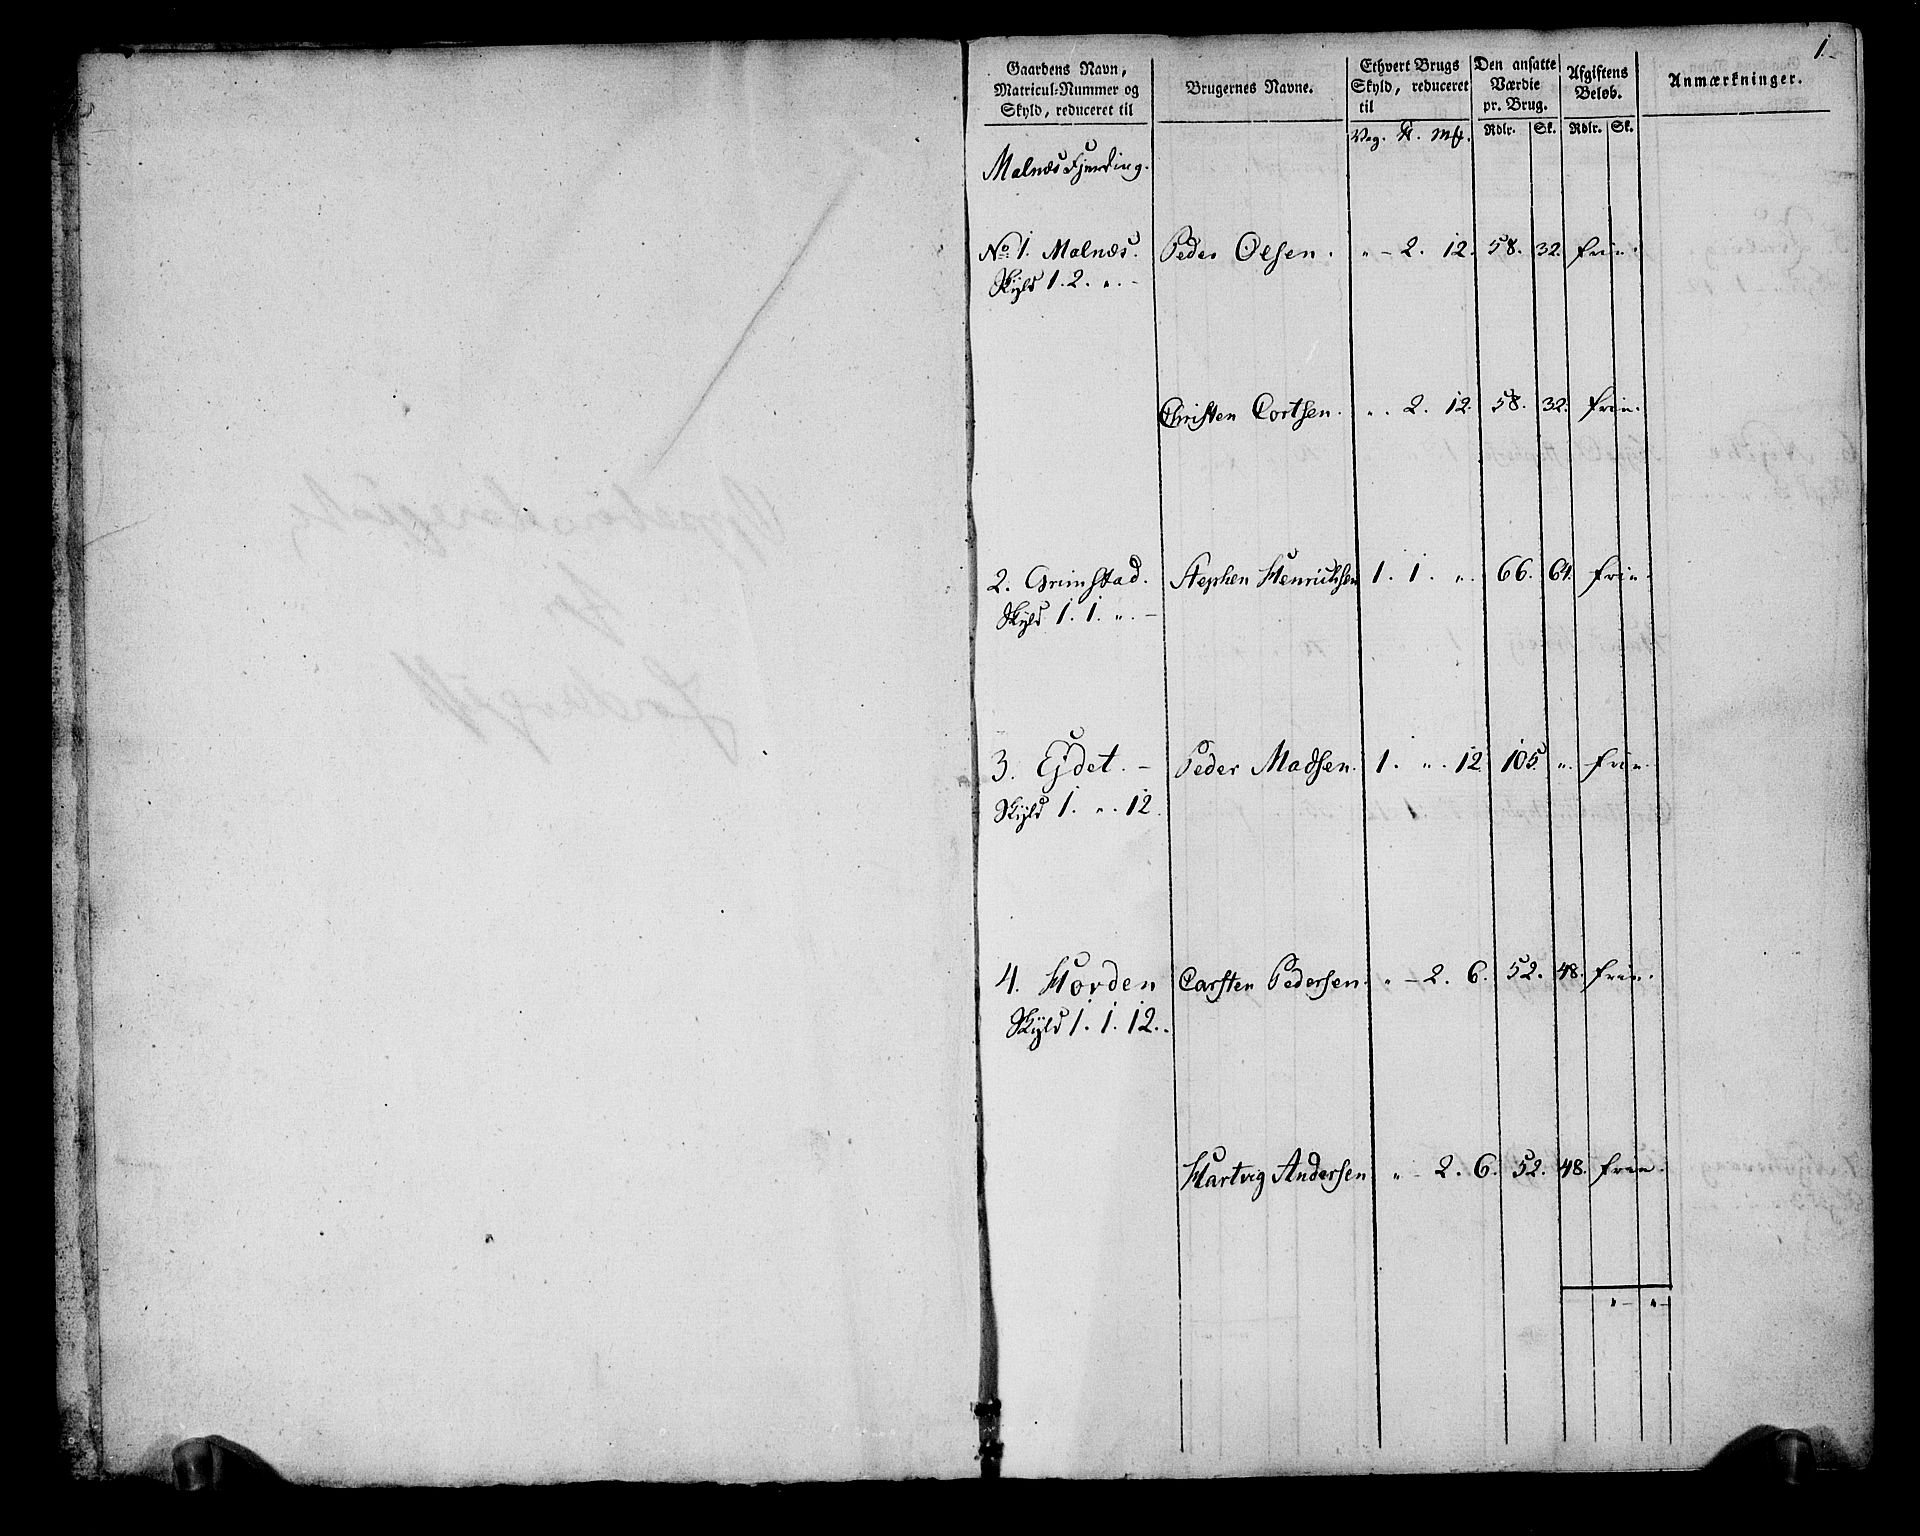 1.
Gaardens Navn, Matricul-Nummer og Skyld, reduceret til | Brugernes Navne. | Ethvert Brugs Skyld, reduceret til | Den ansatte Værdie pr. Brug. | Afgiftens Beløb. | Anmærkninger.
Vog. ℔. mk. | Rdlr. | Sk. | Rdlr. | Sk.
Malnæs Fjerding.
No 1. Malnæs. Peder Olsen. „ – 2. 12. 58. 32. frie.
Skyld 1. 2. „. –
Christen Cortsen. „. 2. 12. 58. 32. frie.
2. Grimstad. Stephen Henrichsen 1. 1. „. 66. 64. frie.
Skyld 1. 1. „. –
3. Ejdet. – Peder Madsen. 1. „. 12 105 „. frie.
Skyld 1. „. 12.
4. Hovden Carsten Pedersen. „ – 2. 6. 52. 48. frie.
Skyld 1. 1. 12.
Hartvig Andersen „ – 2. 6. 52. 48. frie.
„ – „ –